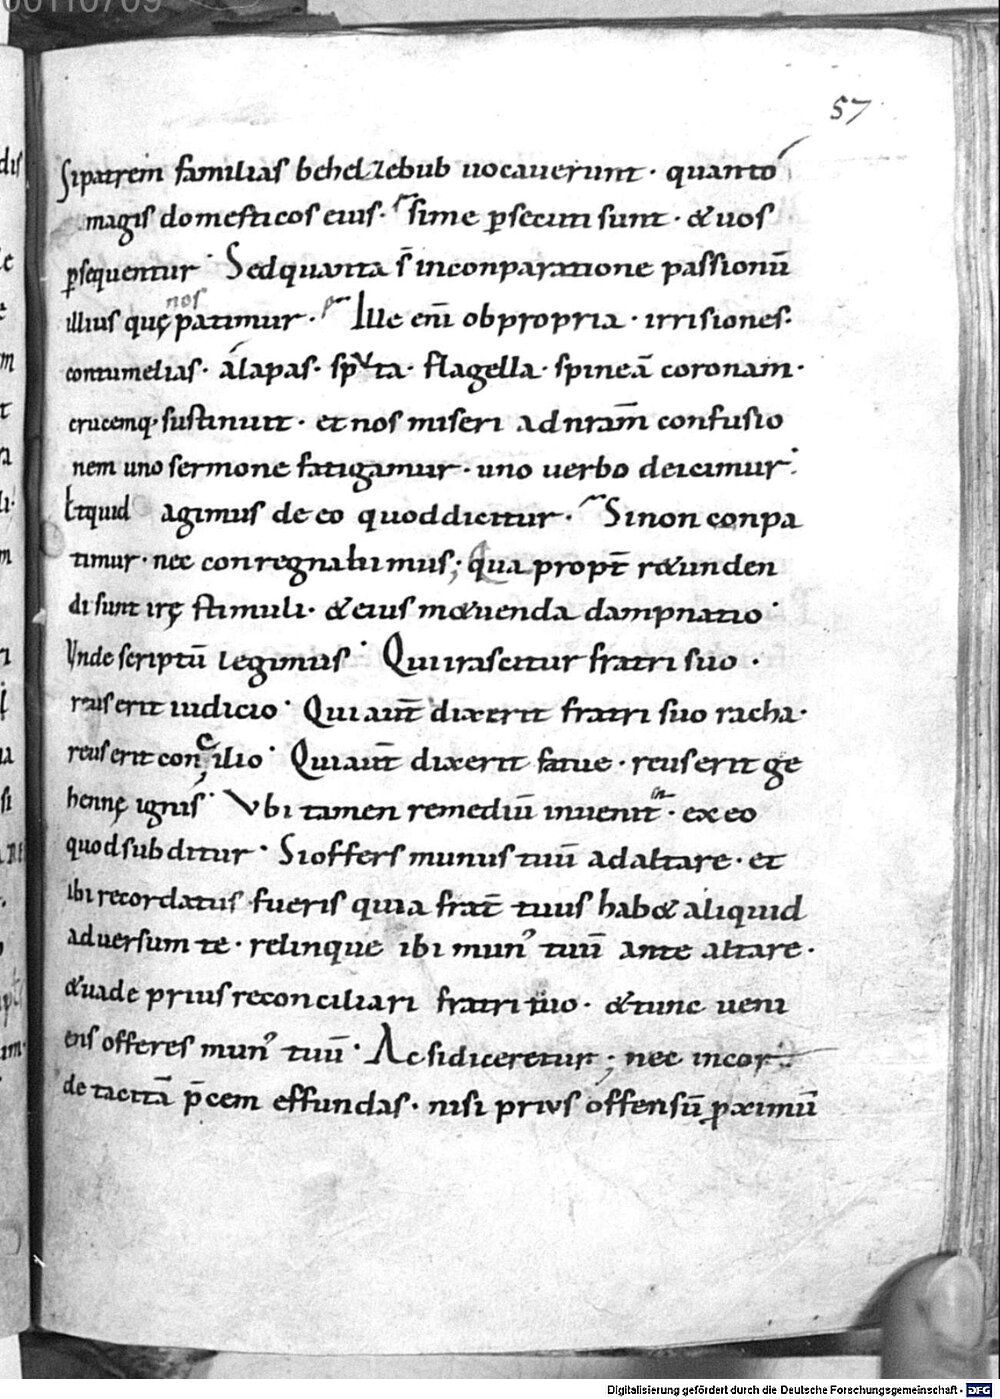 57
Sipatrem familias behelzebub uocauerunt · quanto
magis domesticos eius · Sime p̱secuti sunt · & uos
p̱sequentur · Sed quanta s̄ inconparatione passionū
illius quę nos patimur · Ille enī obpropria · irrisiones ·
contumelias · alapas · sputa · flagella · spineā coronam ·
crucemq; sustinuit · et nos miseri ad nr̄am confusio
nem uno sermone fatigamur · uno uerbo deicimur ·
Et quid agimus de eo quod dicitur · Si non conpa
timur · nec conregnabimus ; Qua propt̄ r&unden
di sunt irę stimuli · & eius m&uenda dampnatio ·
Vnde scriptū legimus · Qui irascitur fratri suo ·
reus erit iudicio · Qui aut̄ dixerit fratri suo racha ·
reus erit concilio · Qui aut̄ dixerit fatue · reus erit ge
hennę ignis · Vbi tamen remediū inuenit̄ · ex eo
quod subditur · Si offers munus tuū ad altare · et
ibi recordatus fueris quia frat̄ tuus hab& aliquid
aduersum te · relinque ibi mun᾿ tuū ante altare ·
& uade prius reconciliari fratri tuo · & tunc ueni
ens offeres mun᾿ tuū · Ac si diceretur ; nec in cor
de tacitā p̄cem effundas · nisi prius offensū p̱ximū
Digitalisierung gefördert durch die Deutsche Forschungsgemeinschaft - DFG